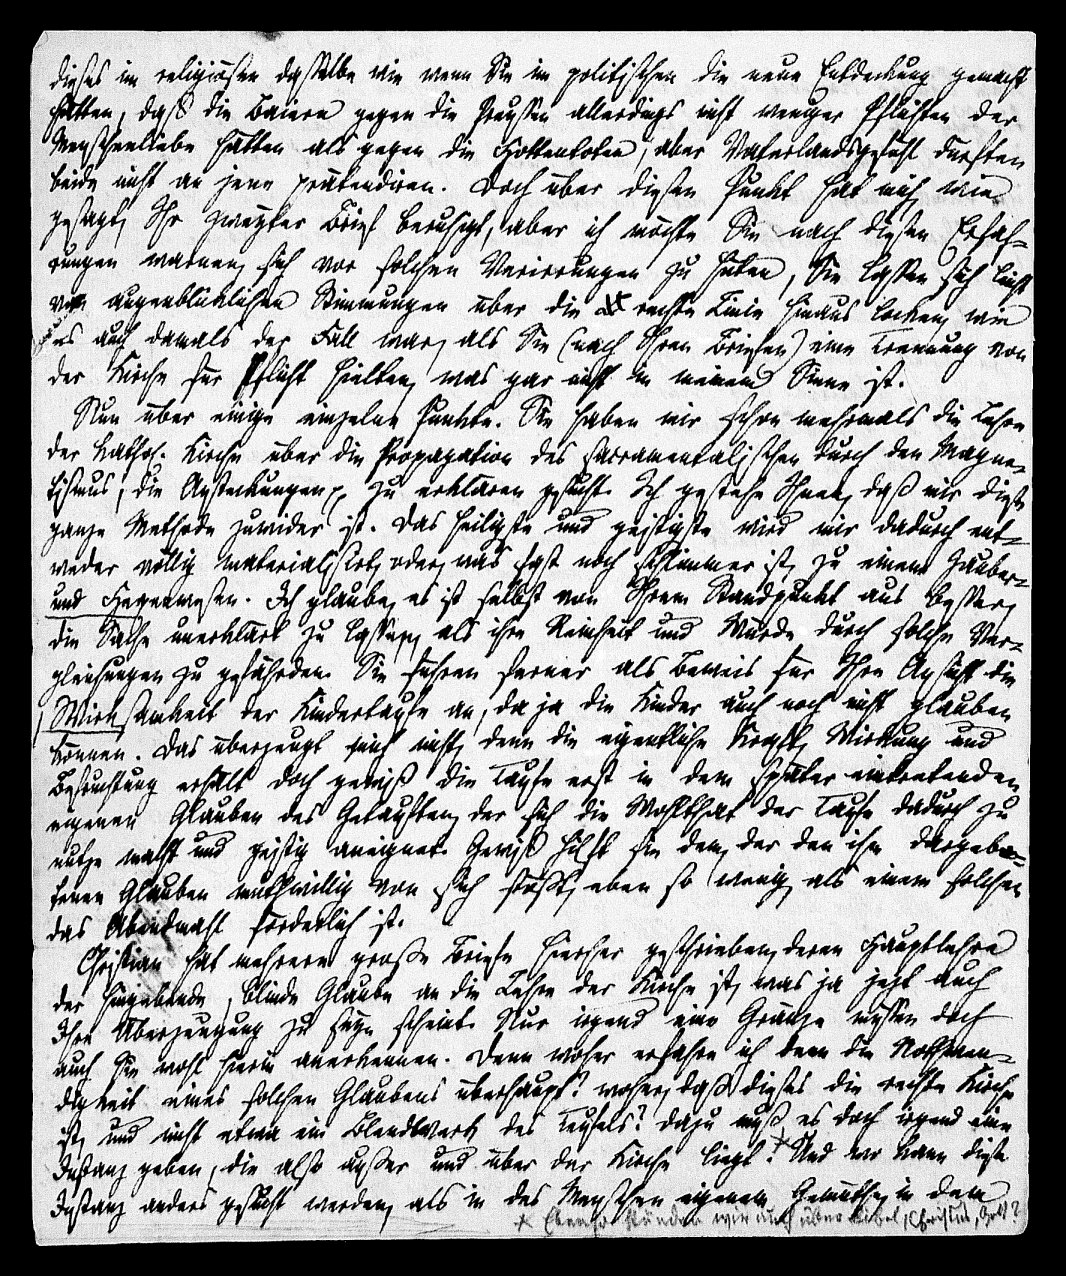 dieses im religiösen dasselbe wie wenn Sie im politischen die neue Entdeckung gemacht
hätten, daß die Baiern gegen die Preussen allerdings nicht weniger Pflichten der
Menschenliebe hätten als gegen die Hottentoten, aber Vaterlandsgefühl dürften
beide nicht an jene prätendiren. Doch über diesen Punkt hat mich, wie
gesagt, Ihr zweyter Brief beruhigt, aber ich möchte Sie nach diesen Erfah-
rungen warnen, sich vor solchen Verirrungen zu hüten, Sie lassen sich leicht
von augenblicklichen Stimmungen über die rechte Linie hinaus locken, wie
es auch damals der Fall war, als Sie (nach Ihren Briefen) eine Trennung von
der Kirche für Pflicht hielten, was gar nicht in meinem Sinne ist.
Nun über einige einzelne Punkte. Sie haben mir schon mehrmals die Lehre
der kathol. Kirche über die Propagation des sacramentalischen durch den Magne-
tismus, die Ansteckungen, zu erklären gesucht. Ich gestehe Ihnen, daß mir diese
ganze Methode zuwider ist. Das heiligste und geistigste wird mir dadurch ent-
weder völlig materialisirt, oder, was fast noch schlimmer ist, zu einem Zauber-
und Hexenwesen. Ich glaube, es ist selbst von Ihrem Standpunkt aus besser,
die Sache unerklärt zu lassen, als ihre Reinheit und Würde durch solche Ver-
gleichungen zu gefährden. Sie führen ferner als Beweis für Ihre Ansicht die
Wirksamkeit der Kindertaufe an, da ja die Kinder auch noch nicht glauben
können. Das überzeugt mich nicht, denn die eigentliche Kraft, Wirkung und
Befruchtung erhält doch gewiß die Taufe erst in dem später eintretenden
eigenen Glauben des Getauften, der sich die Wohlthat der Taufe dadurch zu
nutze macht und geistig aneignet. Gewiß hilft sie dem, der den ihm dargebo-
tenen Glauben muthwillig von sich stößt, eben so wenig, als einem solchen
das Abendmahl förderlich ist.
Christian hat mehrere große Briefe hierher geschrieben, deren Hauptlehre
der hingebende, blinde Glaube an die Lehre der Kirche ist, was ja jetzt auch
Ihre Überzeugung zu seyn scheint. Nur irgend eine Gränze müssen doch
auch Sie wohl hierin anerkennen. Denn woher erfahre ich denn die Nothwen-
digkeit eines solchen Glaubens überhaupt? woher, daß dieses die rechte Kirche
ist, und nicht etwa ein Blendwerk des Teufels? dazu muß es doch irgend eine
Instanz geben, die also außer und über der Kirche liegt? Und wo kann diese
Instanz anders gesucht werden, als in des Menschen eigenem Gemüthe, in dem
wir auch über Bibel, Christus, Gott?